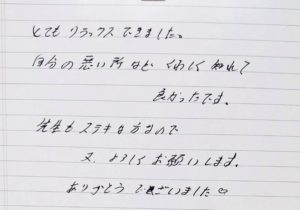 とてもリラックスできました。
自分の悪い所など くわしく知れて
良かったです。
先生もステキな方なので
又、よろしくお願いします。
ありがとうございました♡